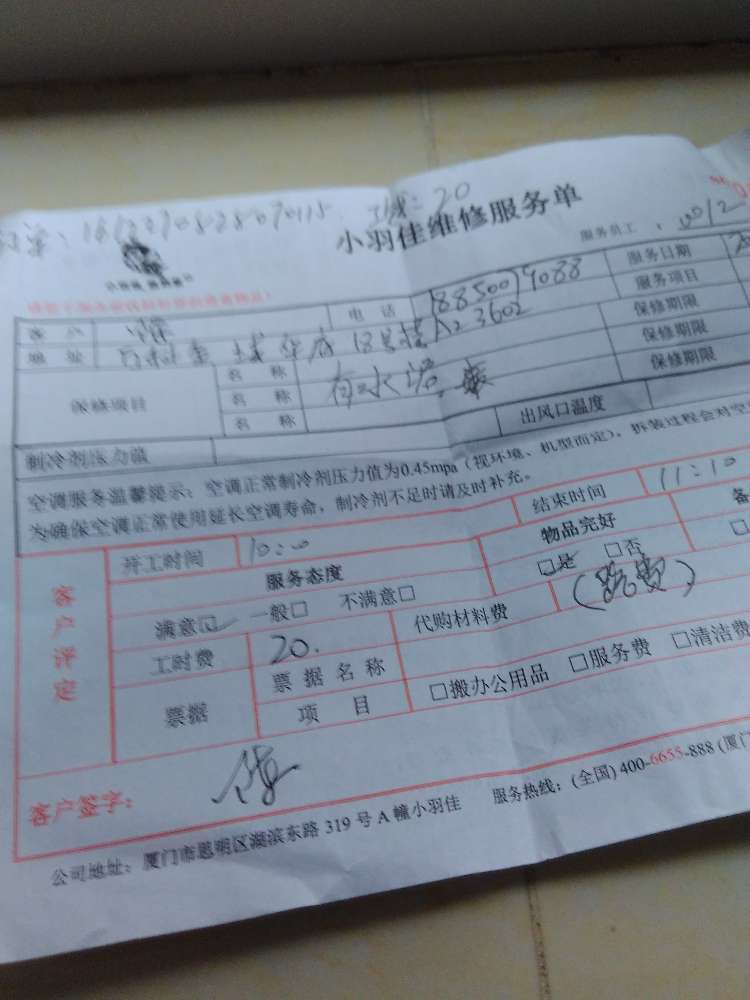 小羽佳维修服务单
服务员工：0012
客户 电话 服务日期
地址 18号楼A23602 服务项目
保修项目 名称 有水诺 保修期限
名称 保修期限
名称 保修期限
制冷剂压力值 出风口温度
空调服务温馨提示：空调正常制冷剂压力值为0.45mpa（视环境、机型而定），拆装过程会对空
为确保空调正常使用延长空调寿命，制冷剂不足时请及时补充。
客户评定 开工时间 10:00 结束时间 11:10
服务态度 物品完好 备
满意☑ 一般□ 不满意□ □是 □否 □
工时费 20. 代购材料费 (路费)
票据 票据名称 □搬办公用品 □服务费 □清洁费
项目
客户签字：
公司地址：厦门市思明区湖滨东路 319 号 A 幢小羽佳 服务热线：(全国) 400-6655-888 (厦门